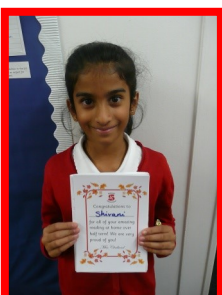 Congratulations to
Shivani
for all of your amazing
reading at home over
half term! We are very
proud of you!